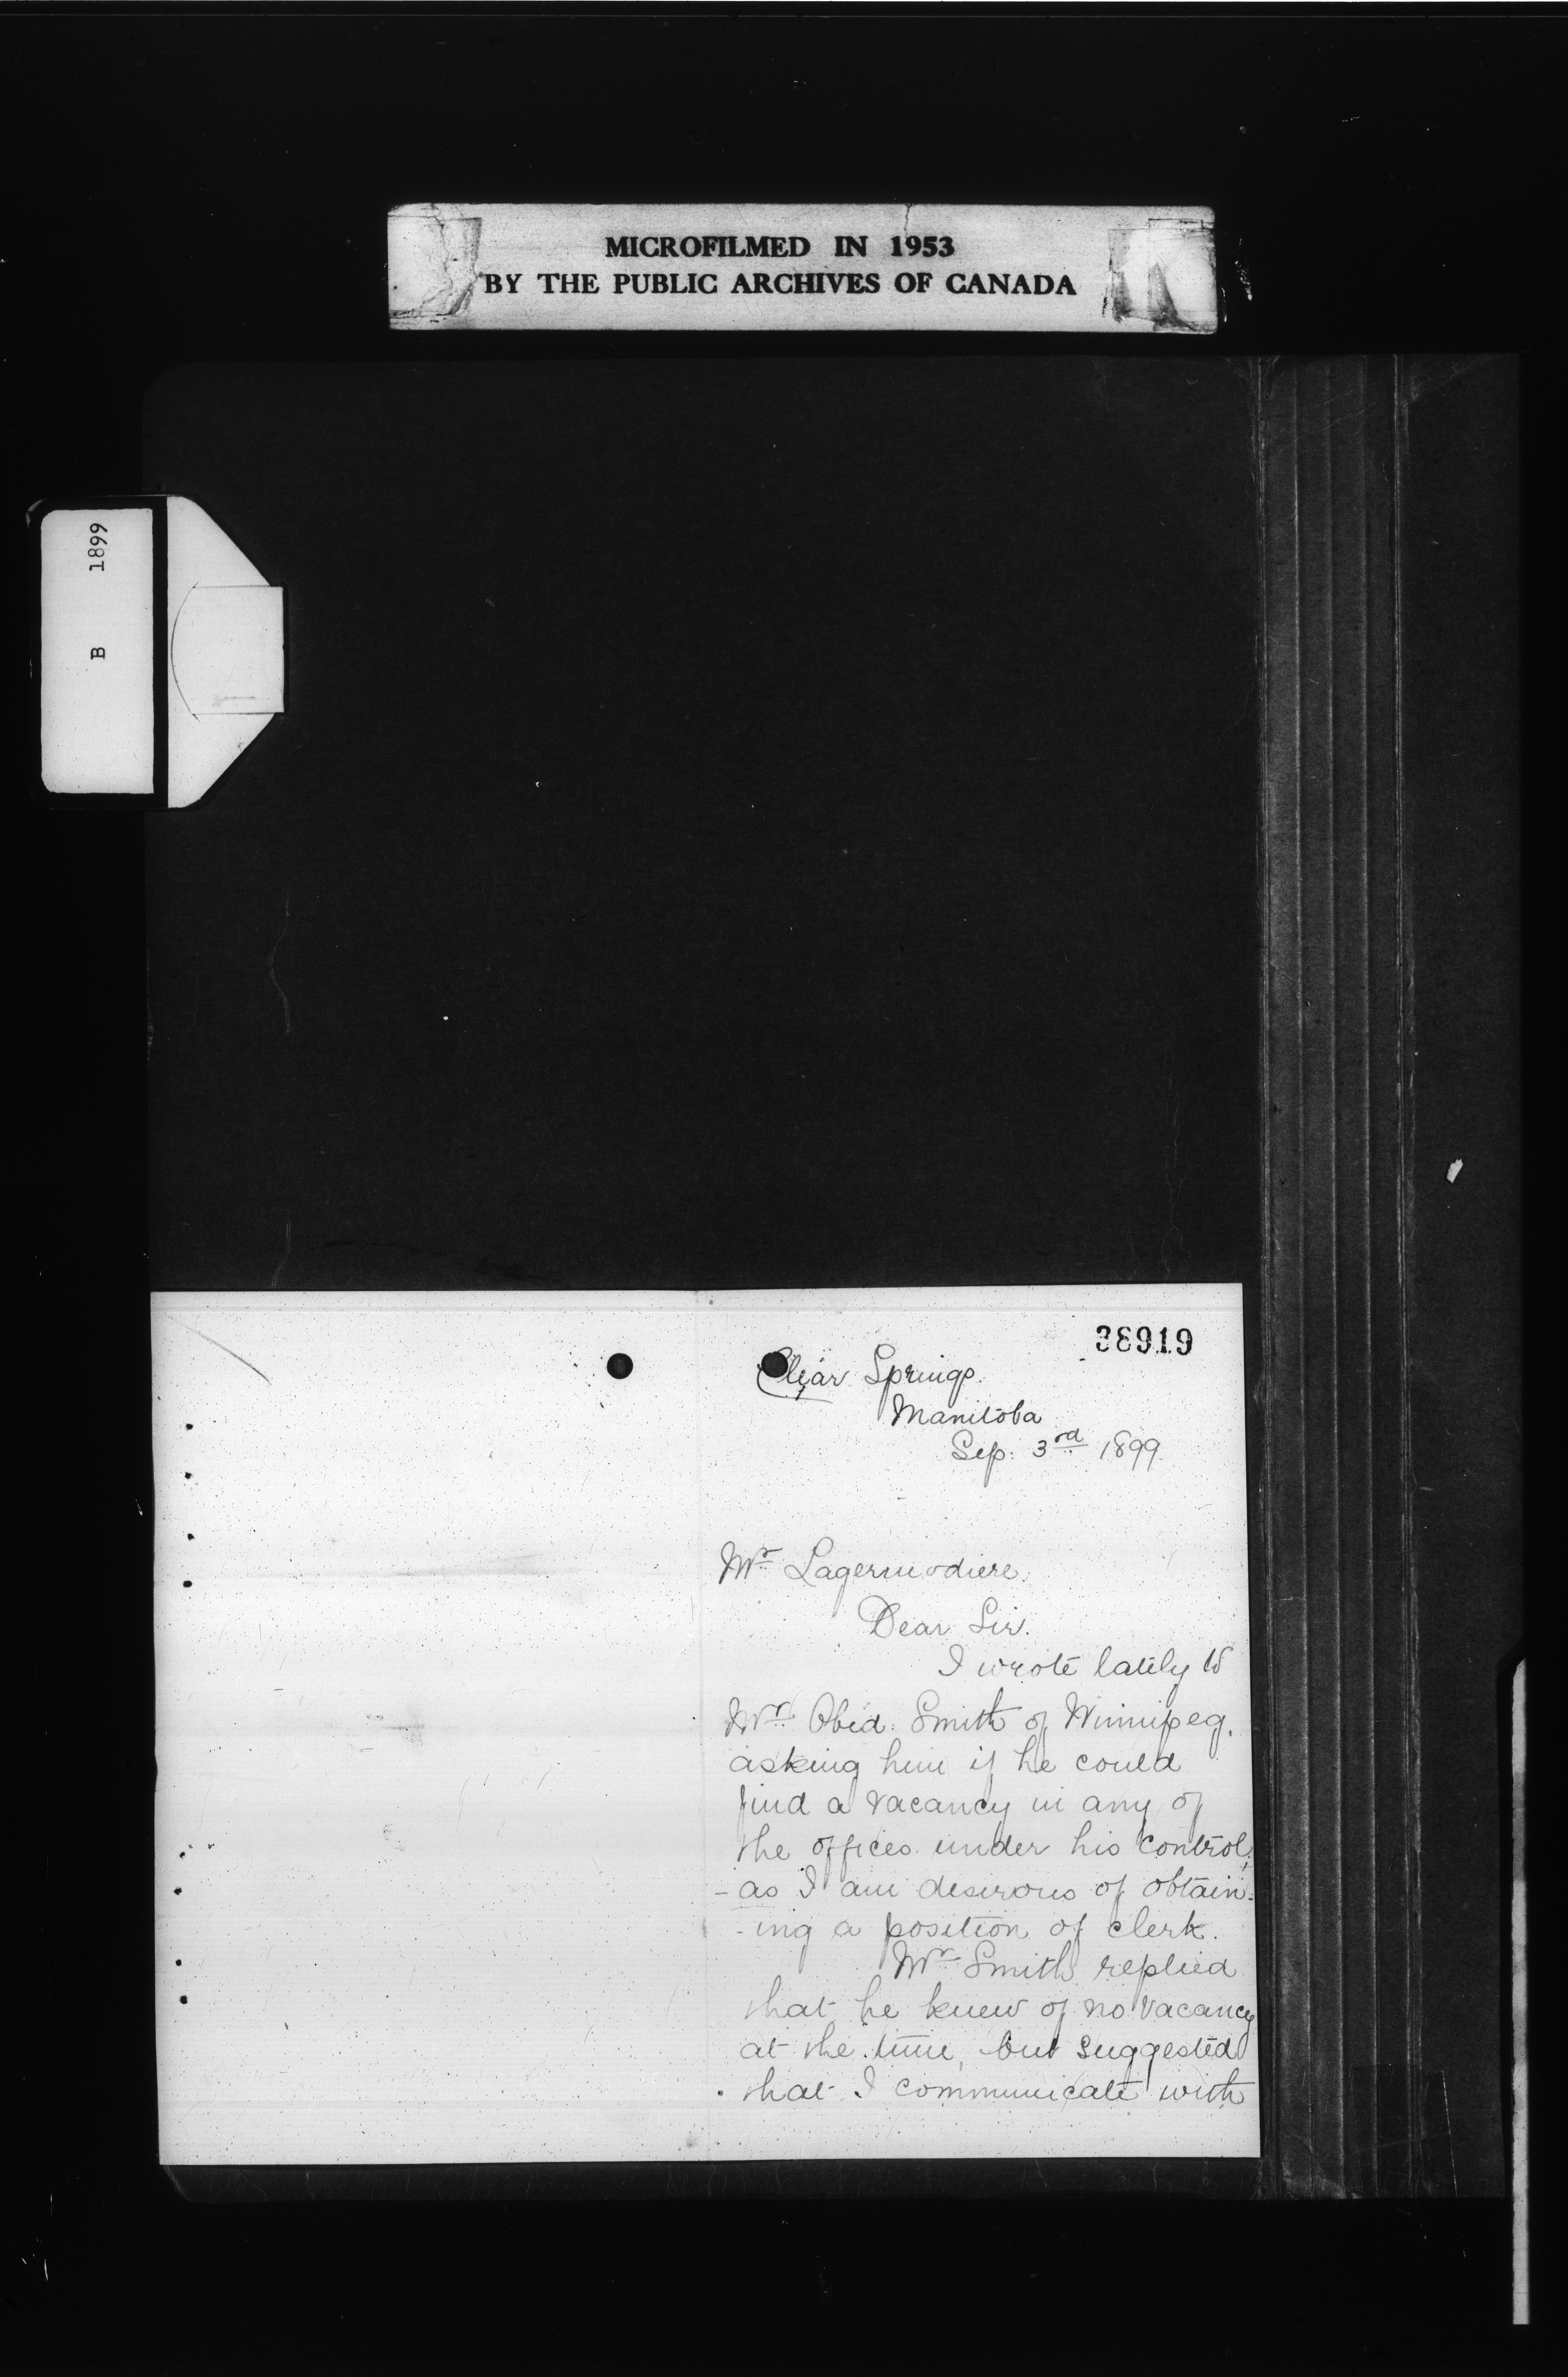 MICROFILMED IN 1953
BY THE PUBLIC ARCHIVES OF CANADA
B 1899
38919
Clear Springs.
Manitoba
Sep: 3rd 1899
Mr. Lagermodiere.
Dear Sir.
I wrote lately to
Mr. Obed. Smith of Winnipeg.
asking him if he could
find a vacancy in any of
the offices under his control;
- as I am desirous of obtain-
-ing a position of clerk.
Mr. Smith replied
that he knew of no vacancy
at the time, but suggested
that I communicate with